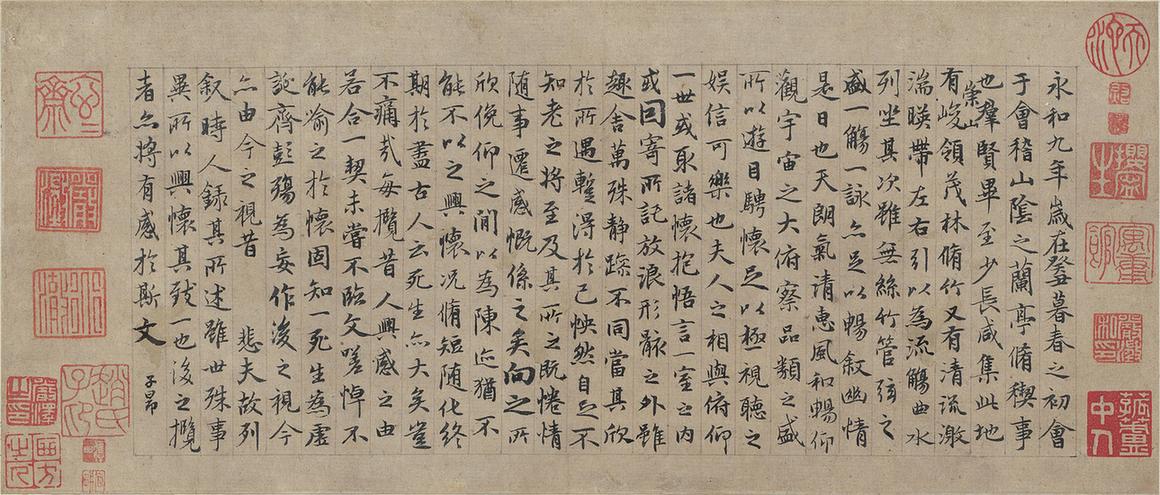 永和九年歲在癸丑暮春之初會
于會稽山陰之蘭亭脩禊事
也羣賢畢至少長咸集此地
有崇山峻領茂林脩竹又有清流激
湍暎帶左右引以為流觴曲水
列坐其次雖無絲竹管弦之
盛一觴一詠亦足以暢叙幽情
是日也天朗氣清惠風和暢仰
觀宇宙之大俯察品類之盛
所以遊目騁懷足以極視聽之
娛信可樂也夫人之相與俯仰
一世或取諸懷抱悟言一室之內
或因寄所託放浪形骸之外雖
趣舍萬殊静躁不同當其欣
於所遇蹔得於己怏然自足不
知老之將至及其所之既惓情
随事遷感慨係之矣向之所
欣俛仰之閒以為陳迹猶不
能不以之興懷况脩短随化終
期於盡古人云死生亦大矣豈
不痛哉每攬昔人興感之由
若合一契未嘗不臨文嗟悼不
能喻之於懷固知一死生為虛
誕齊彭殤為妄作後之視今
亦由今之視昔 悲夫故列
叙時人録其所述雖世殊事
異所以興懷其致一也後之攬
者亦將有感於斯文 子昂
趙氏子印